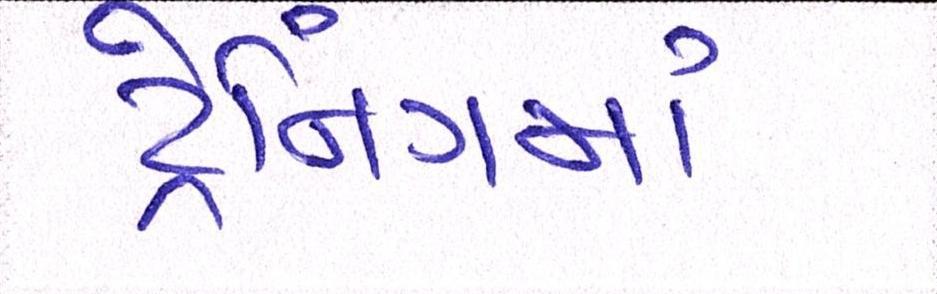 ટ્રેનિંગમાં